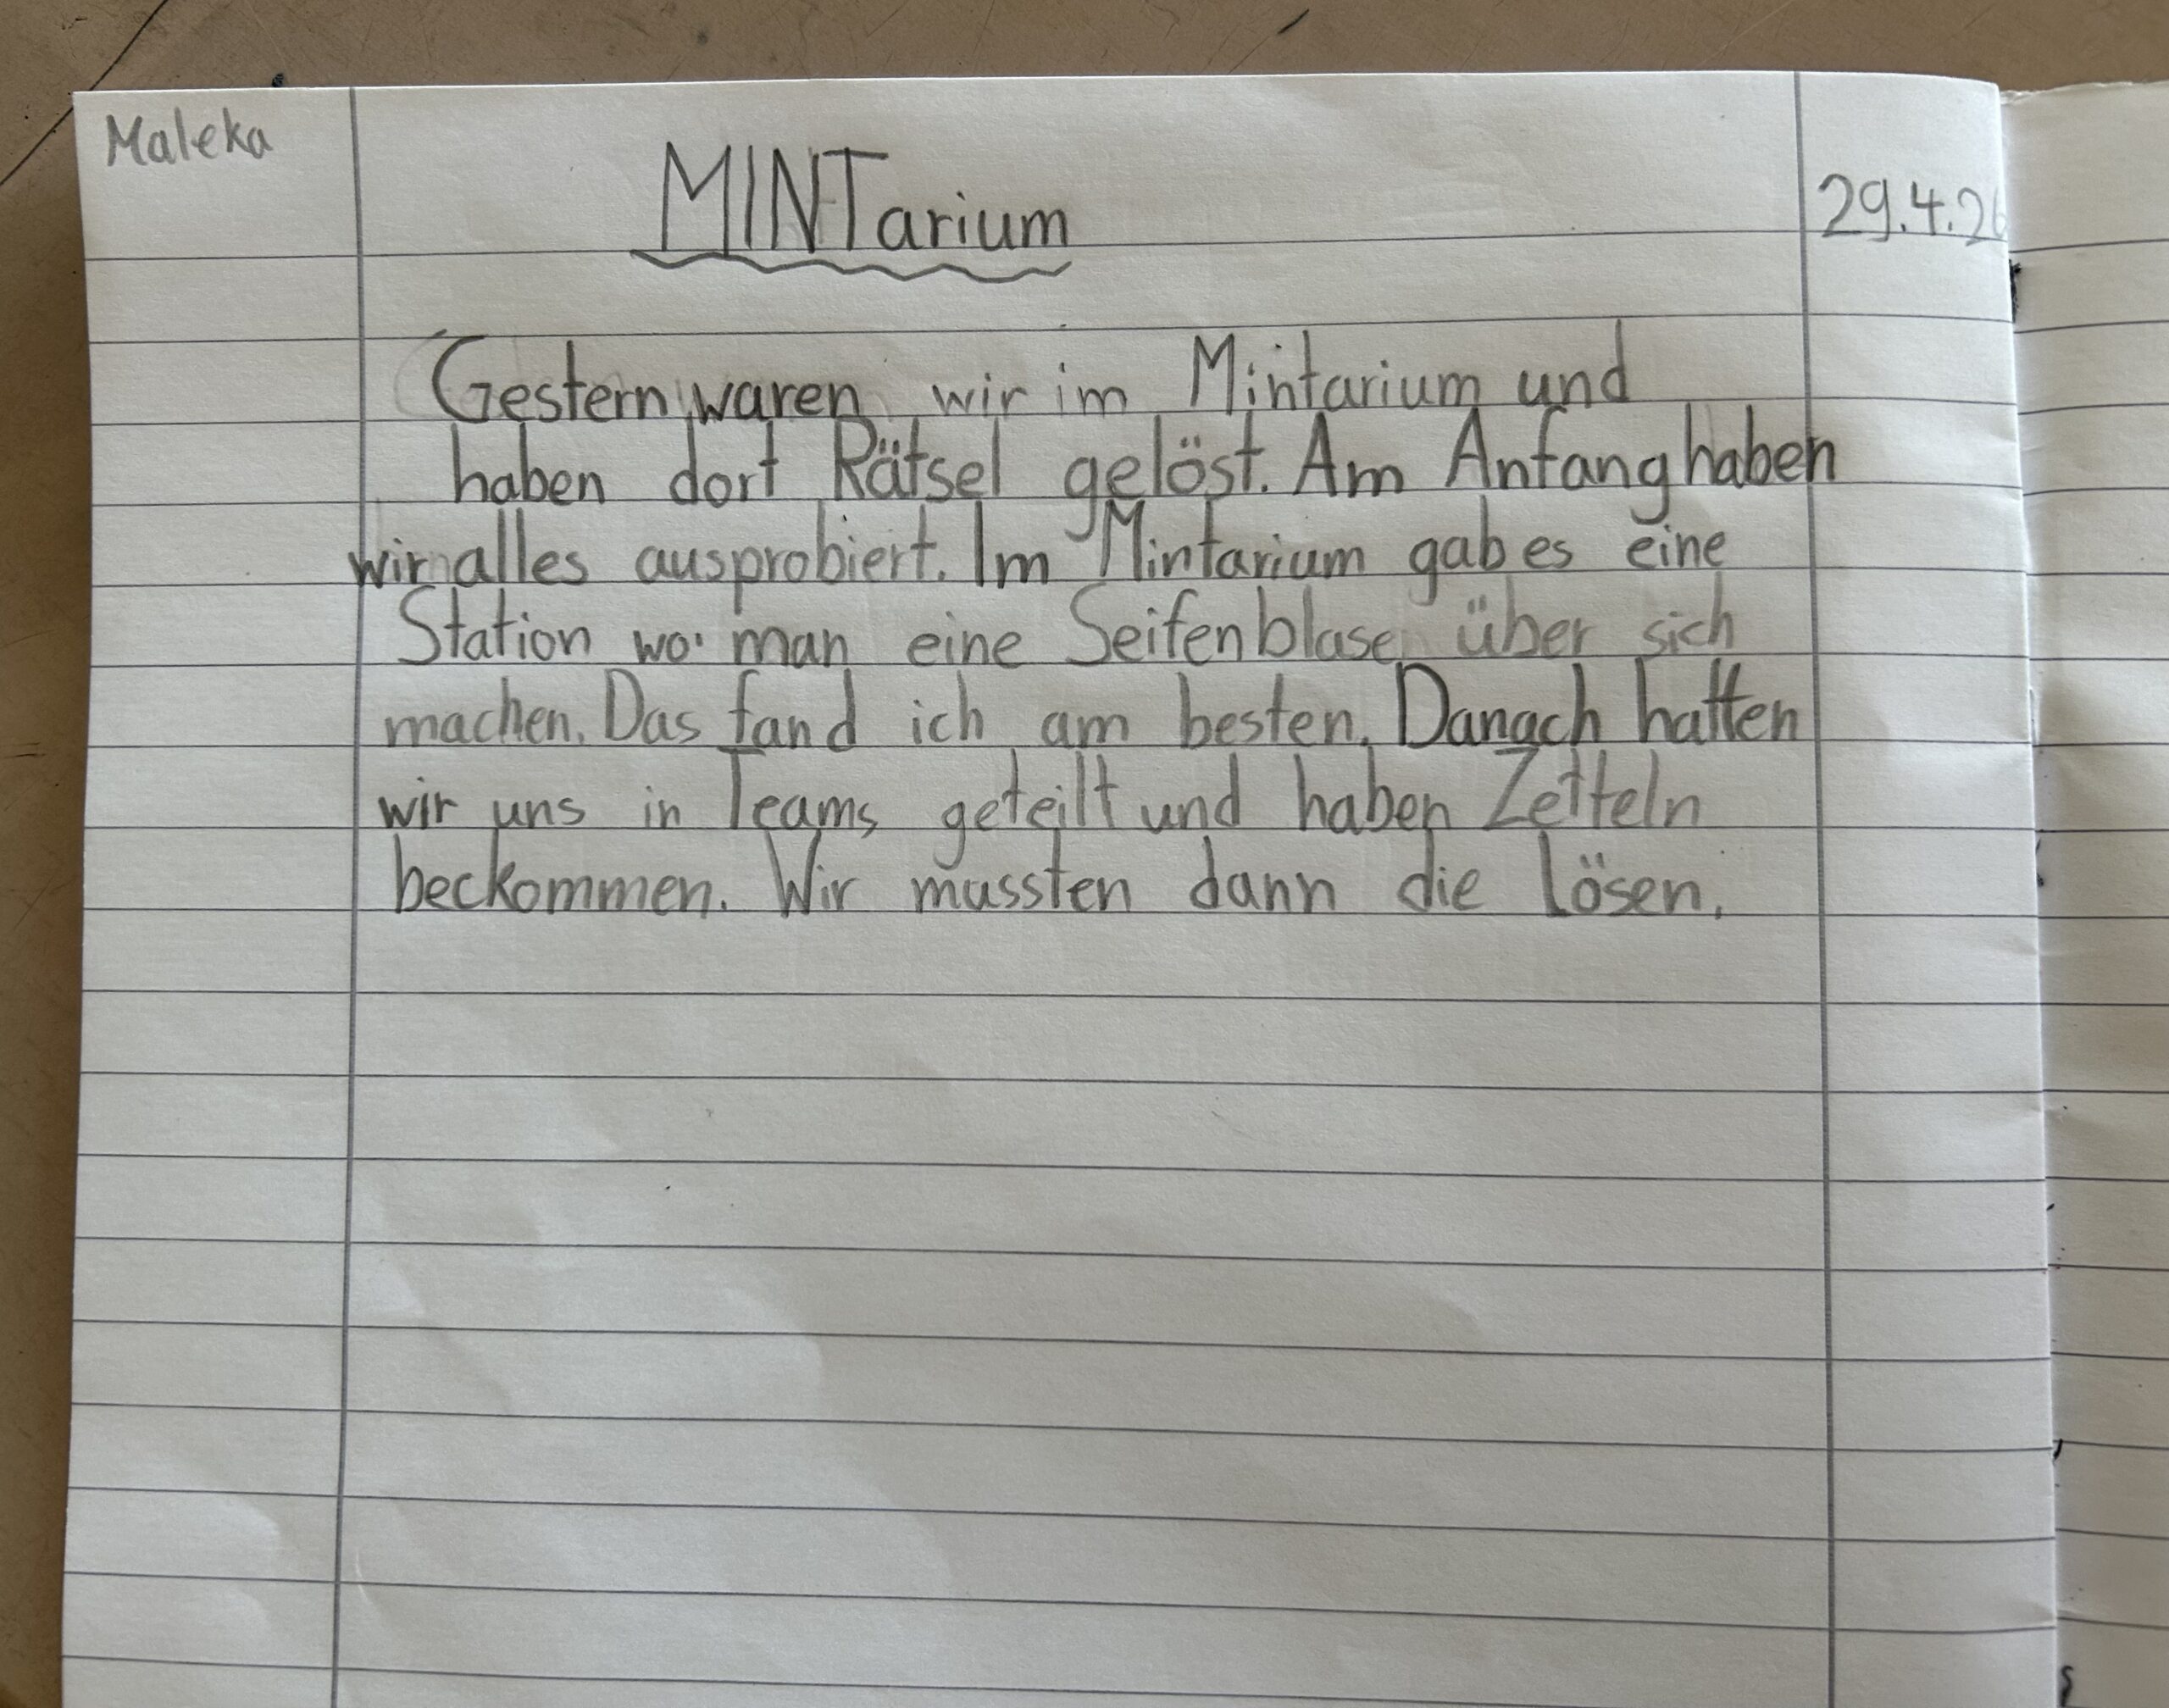 Maleka
MINTarium
29.4.26
Gestern waren wir im Mintarium und
haben dort Rätsel gelöst. Am Anfang haben
wir alles ausprobiert. Im Mintarium gab es eine
Station wo man eine Seifenblase über sich
machen. Das fand ich am besten. Danach hatten
wir uns in Teams geteilt und haben Zetteln
beckommen. Wir mussten dann die lösen.